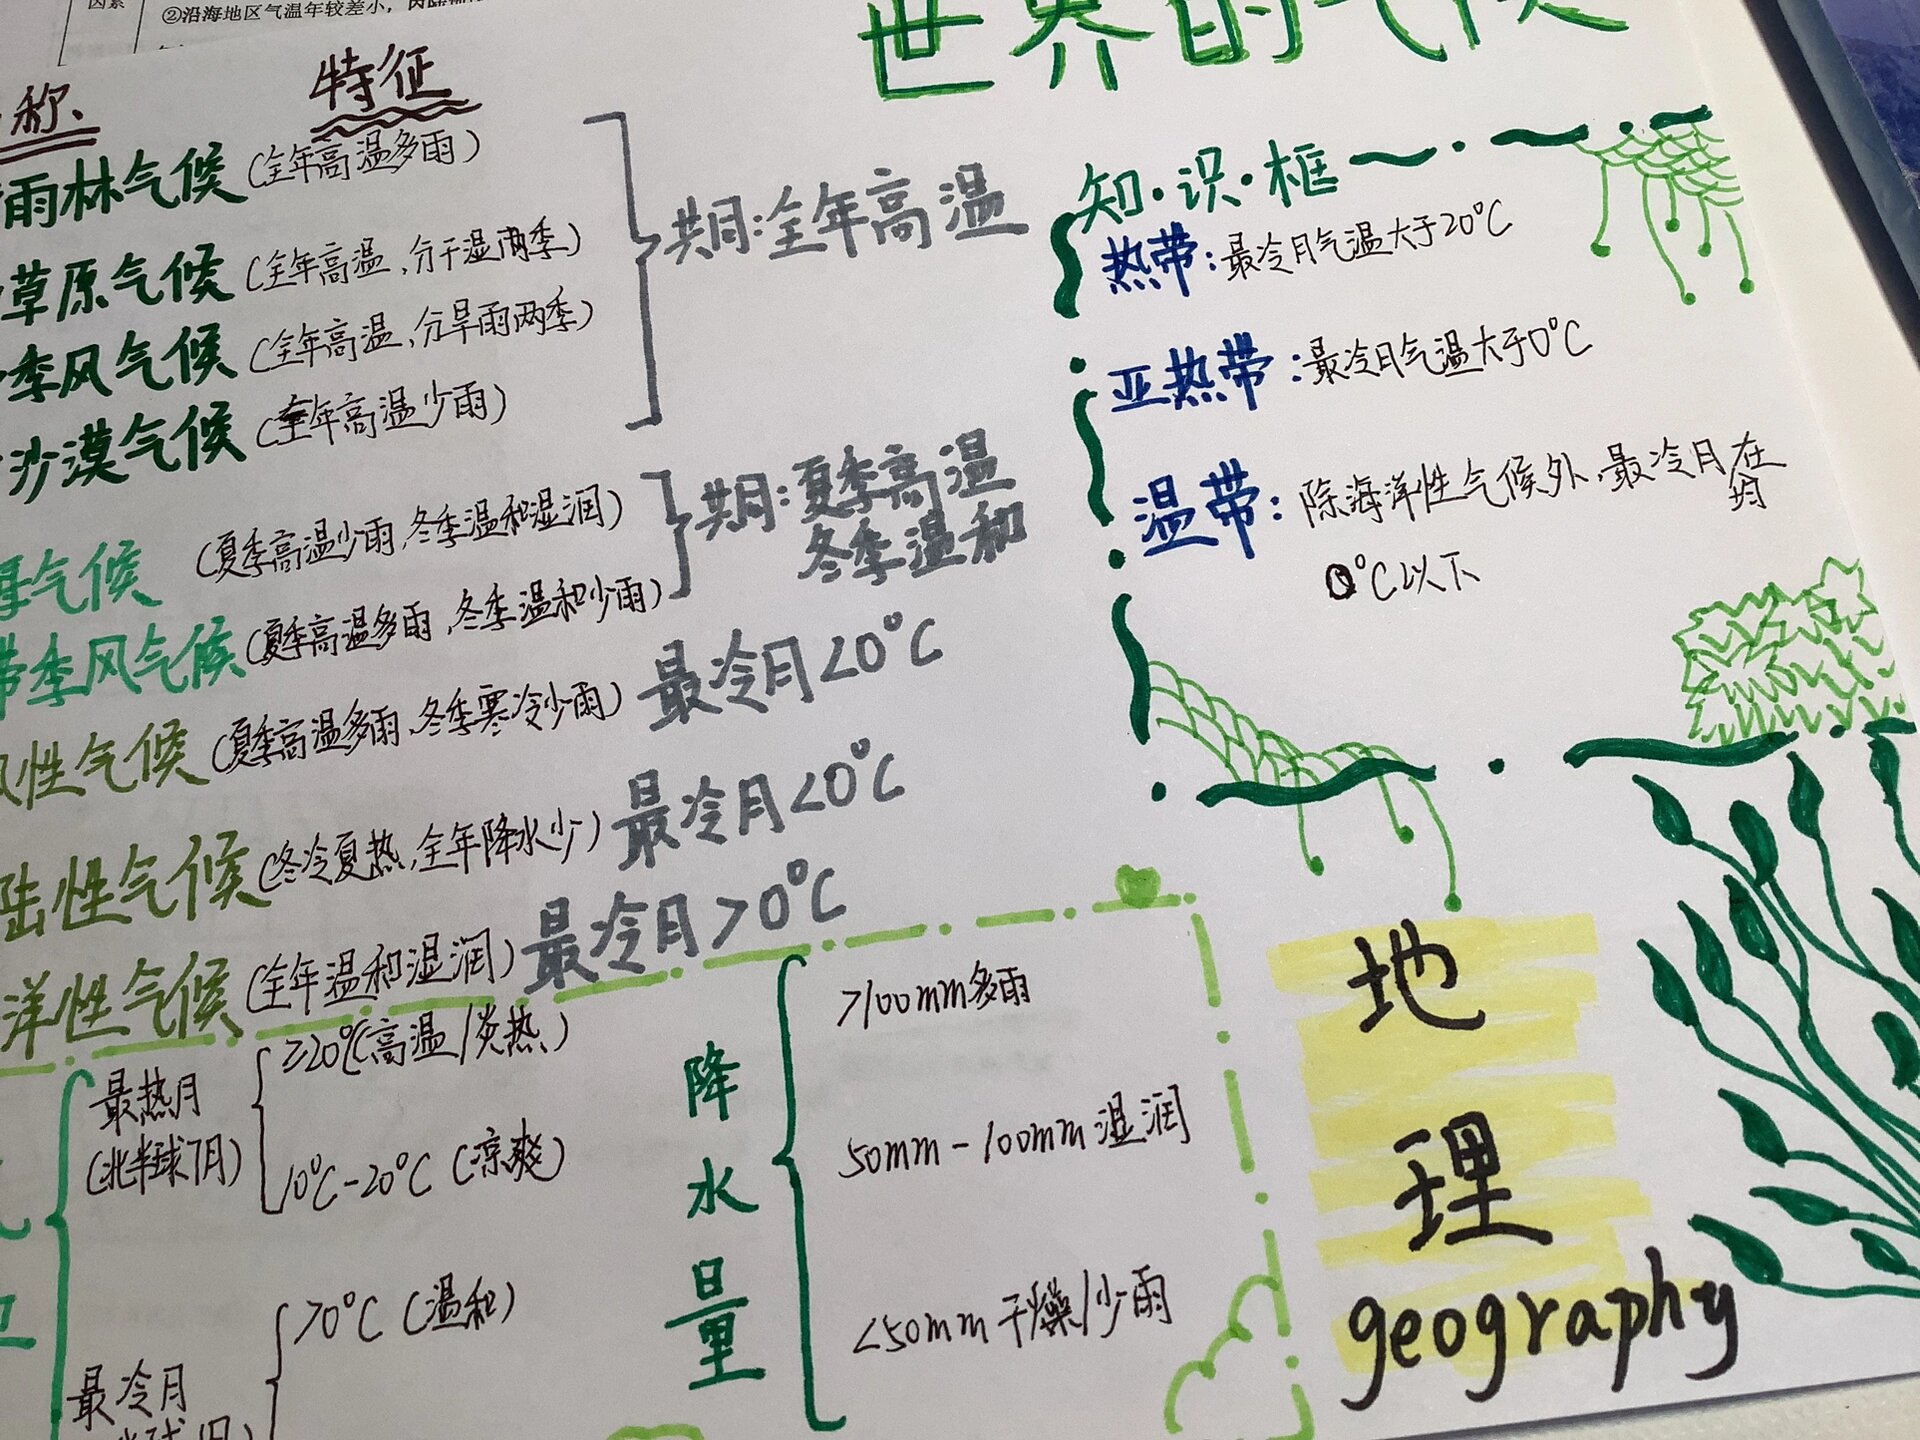 因素
②沿海地区气温年较差小，
世界的气候
称
特征
雨林气候（全年高温多雨）
草原气候（全年高温，分干湿两季）
季风气候（全年高温，分旱雨两季）
沙漠气候（全年高温少雨）
共同:全年高温
气候（夏季高温少雨，冬季温和湿润）
带季风气候（夏季高温多雨，冬季温和少雨）
共同:夏季高温
冬季温和
性气候（夏季高温多雨，冬季寒冷少雨）最冷月<0°C
陆性气候（冬冷夏热，全年降水少）最冷月<0°C
洋性气候（全年温和湿润）最冷月>0°C
知·识·框
热带：最冷月气温大于20°C
亚热带：最冷月气温大于0°C
温带：除海洋性气候外，最冷月在
均
0°C以下
最热月
(北半球7月)
≥20°C(高温/炎热)
10°C-20°C(凉爽)
最冷月
>0°C(温和)
降水量
>100mm多雨
50mm-100mm湿润
<50mm干燥/少雨
地
理
geography